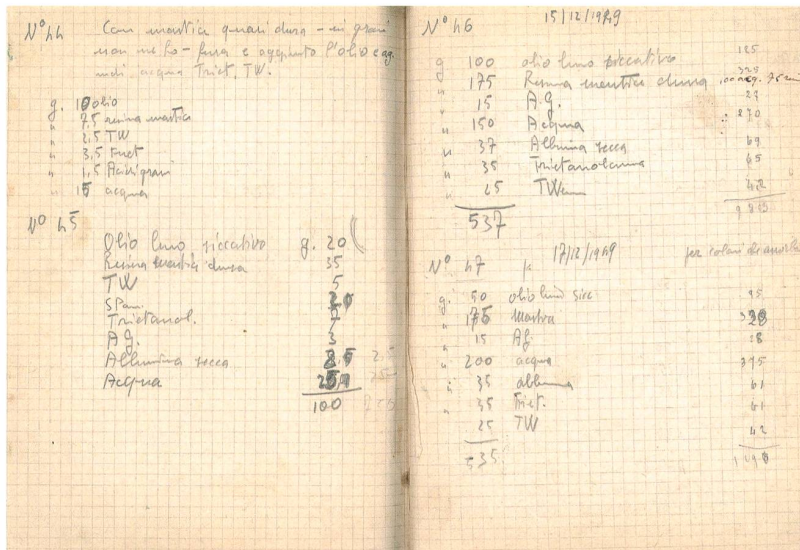 N° 44 Con mastice quasi dura - in grani
non - fusa e aggiunto l'olio e ag.
acqua Triet, TW.
g. 10 olio
" 7,5 resina mastice
" 2,5 TW
" 3,5 Triet
" 1,5 Acidi grassi
" 15 acqua
N° 45
Olio lino siccativo g. 20
Resina mastice dura 35
TW 5
Span
Trietanol.
A.G. 3
Albumina secca
Acqua
100
N° 46 15/12/1949
g 100 olio lino siccativo 185
" 175 Resina mastice dura 325
" 15 A.G. 28
" 150 Acqua 270
" 37 Albumina secca 69
" 35 Trietanolamina 65
" 25 TW 42
537
N° 47 17/12/1949 per colori
g. 50 olio lino sicc 95
" 175 Mastice
" 15 AG. 28
" 200 acqua 375
" 35 albumina 61
" 35 Triet. 61
25 TW 42
535